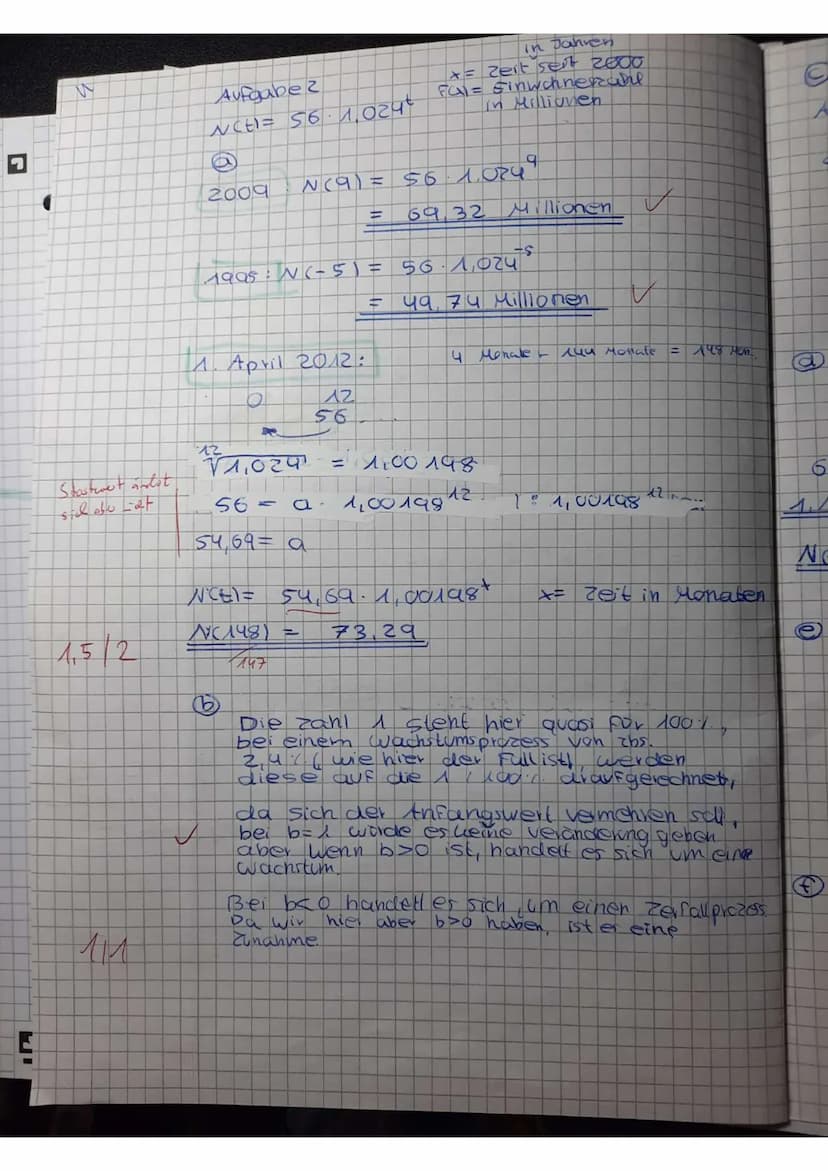 in Jahren
Aufgabe 2
x = Zeit seit 2000
F(x) = Einwohnerzahl
in Millionen
N(t) = 56 · 1,024^t
a
2009 : N(9) = 56 · 1,024^9
= 69,32 Millionen ✓
1995 : N(-5) = 56 · 1,024^-5
= 49,74 Millionen ✓
1. April 2012:
4 Monate + 144 Monate = 148 Mon.
0 12
56
12√1,024 = 1,00198
Startwert ändert
sich aber nicht
56 = a · 1,00198^12 | : 1,00198^12
54,69 = a
N(t) = 54,69 · 1,00198^t x = Zeit in Monaten
N(148) = 73,29
147
1,5/2
b
Die Zahl 1 steht hier quasi für 100%,
bei einem Wachstumsprozess von zbs.
2,4% (wie hier der Fall ist), werden
diese auf die 1 / 100% draufgerechnet,
da sich der Anfangswert vermehren soll,
bei b=1 würde es keine Veränderung geben
aber wenn b>0 ist, handelt es sich um eine
Wachstum.
✓
Bei b<0 handelt es sich um einen Zerfallprozess
Da wir hier aber b>0 haben, ist es eine
Zunahme.
1/1
c
d
6
1,
N(
e
f